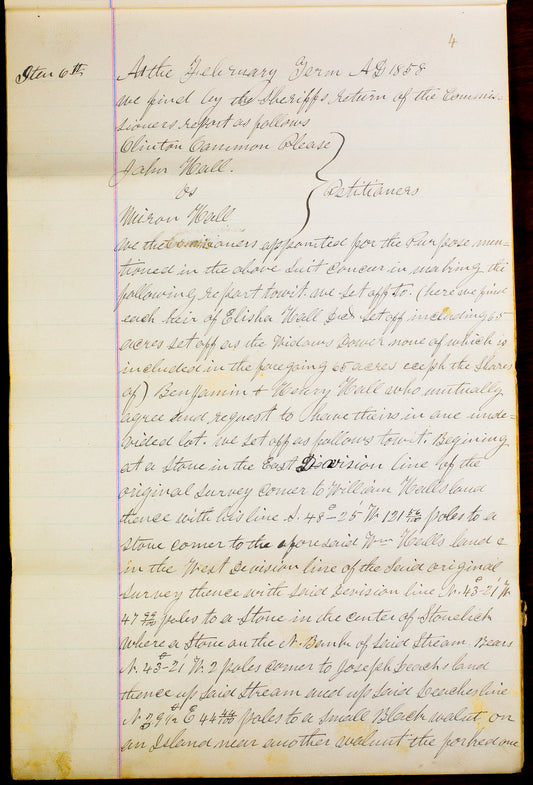 4
Item 6th
At the February Term AD 1858
we find by the Sheriffs return of the Commis-
sioners report as follows
Clinton Common Please
John Hall.
vs
Petitianers
Miron Hall
we the Comisioners appointed for the Purpose men-
tioned in the above Suit concur in making the
following report towit. we Set off to. (here we find
each heir of Elisha Hall Decd Set off including 65
acres Set off as the Widows Dower none of which is
included in the foregoing 65 acres eceph the Shares
of) Benjamin & Henry Hall who mutually
agree and request to have theirs in one unde-
vided lot. we Set off as follows towit. Begining
at a Stone in the East Devision line of the
original Survey comer to William Halls land
thence with his line S. 48°-25' W. 121 poles to a
Stone comer to the aforesaid Wm Halls land &
in the West Devision line of the Said original
Survey thence with Said Devision line N. 43°-21' W
47 poles to a Stone in the center of Stonelick
where a Stone on the N. Bank of Said Stream Bears
N. 43°-21' W. 2 poles comer to Joseph Leachs land
thence up Said Stream and up Said Leaches line
N E 44 poles to a Small Black walnut, on
an Island near another walnut the forked one